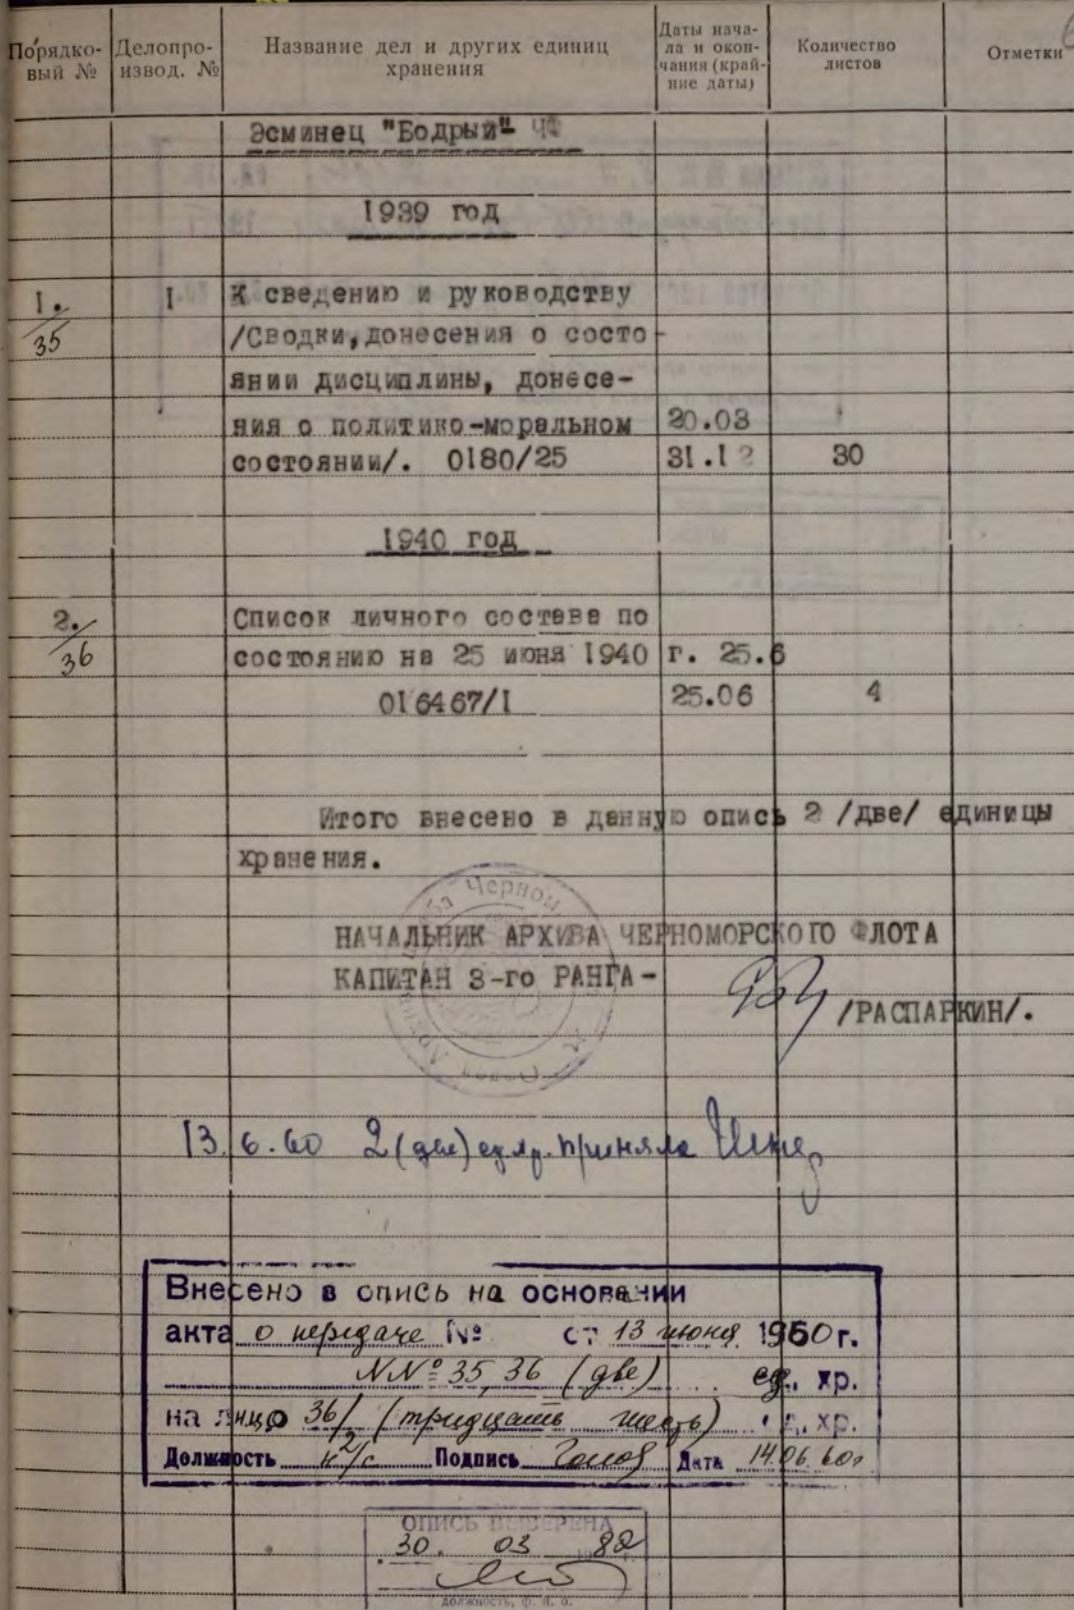 Порядко- вый №
Делопро- извод. №
Название дел и других единиц хранения
Даты нача- ла и окон- чания (край- ние даты)
Количество листов
Отметки
Эсминец "Бодрый" ЧФ
1939 год
1. 1 К сведению и руководству
35 /Сводки, донесения о состо-
янии дисциплины, донесе-
ния о политико-моральном 20.03
состоянии/. 0180/25 31.12 30
1940 год
2. Список личного состава по
36 состоянию на 25 июня 1940 г. 25.6
016467/1 25.06 4
Итого внесено в данную опись 2 /две/ единицы
хранения.
НАЧАЛЬНИК АРХИВА ЧЕРНОМОРСКОГО ФЛОТА
КАПИТАН 3-го РАНГА-
/РАСПАРКИН/.
13.6.60 2 (две) ед.хр. приняла
Внесено в опись на основании
акта о передаче № от 13 июня 1960 г.
NNº 35, 36 (две) ед. хр.
на лицо 36/ (тридцать шесть) ед. хр.
Должность Подпись Дата 14.06.60г
ОПИСЬ ВЫВЕРЕНА
30. 03 82
должность, ф. и. о.